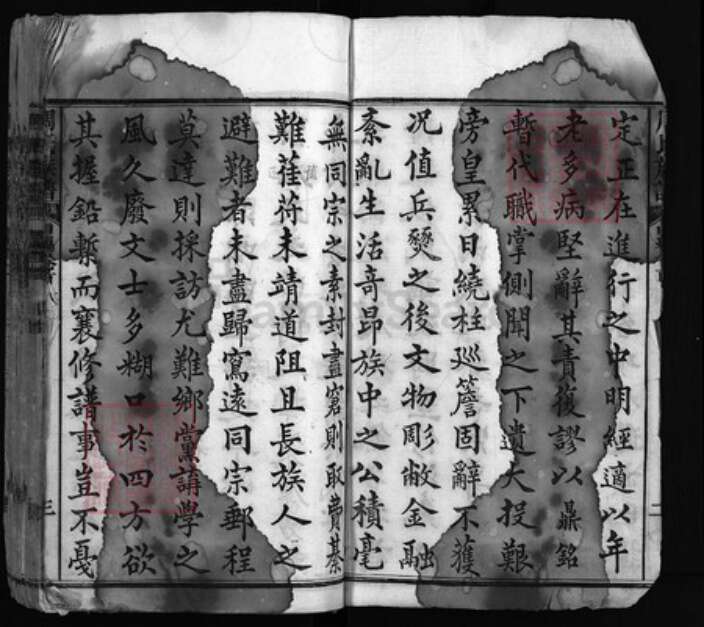 定正在進行之中明經適以年
老多病堅辭其責復謬以鼎銘
暫代職掌側聞之下遺大投艱
旁皇累日繞柱巡簷固辭不獲
况值兵燹之後文物彫敝金融
紊亂生活奇昂族中之公積毫
無同宗之素封盡窘則取費綦
難萑苻未靖道阻且長族人之
避難者未盡歸寫遠同宗郵程
莫達則採訪尤難鄉黨講學之
風久廢文士多糊口於四方欲
其握鉛槧而襄修譜事豈不戞
三